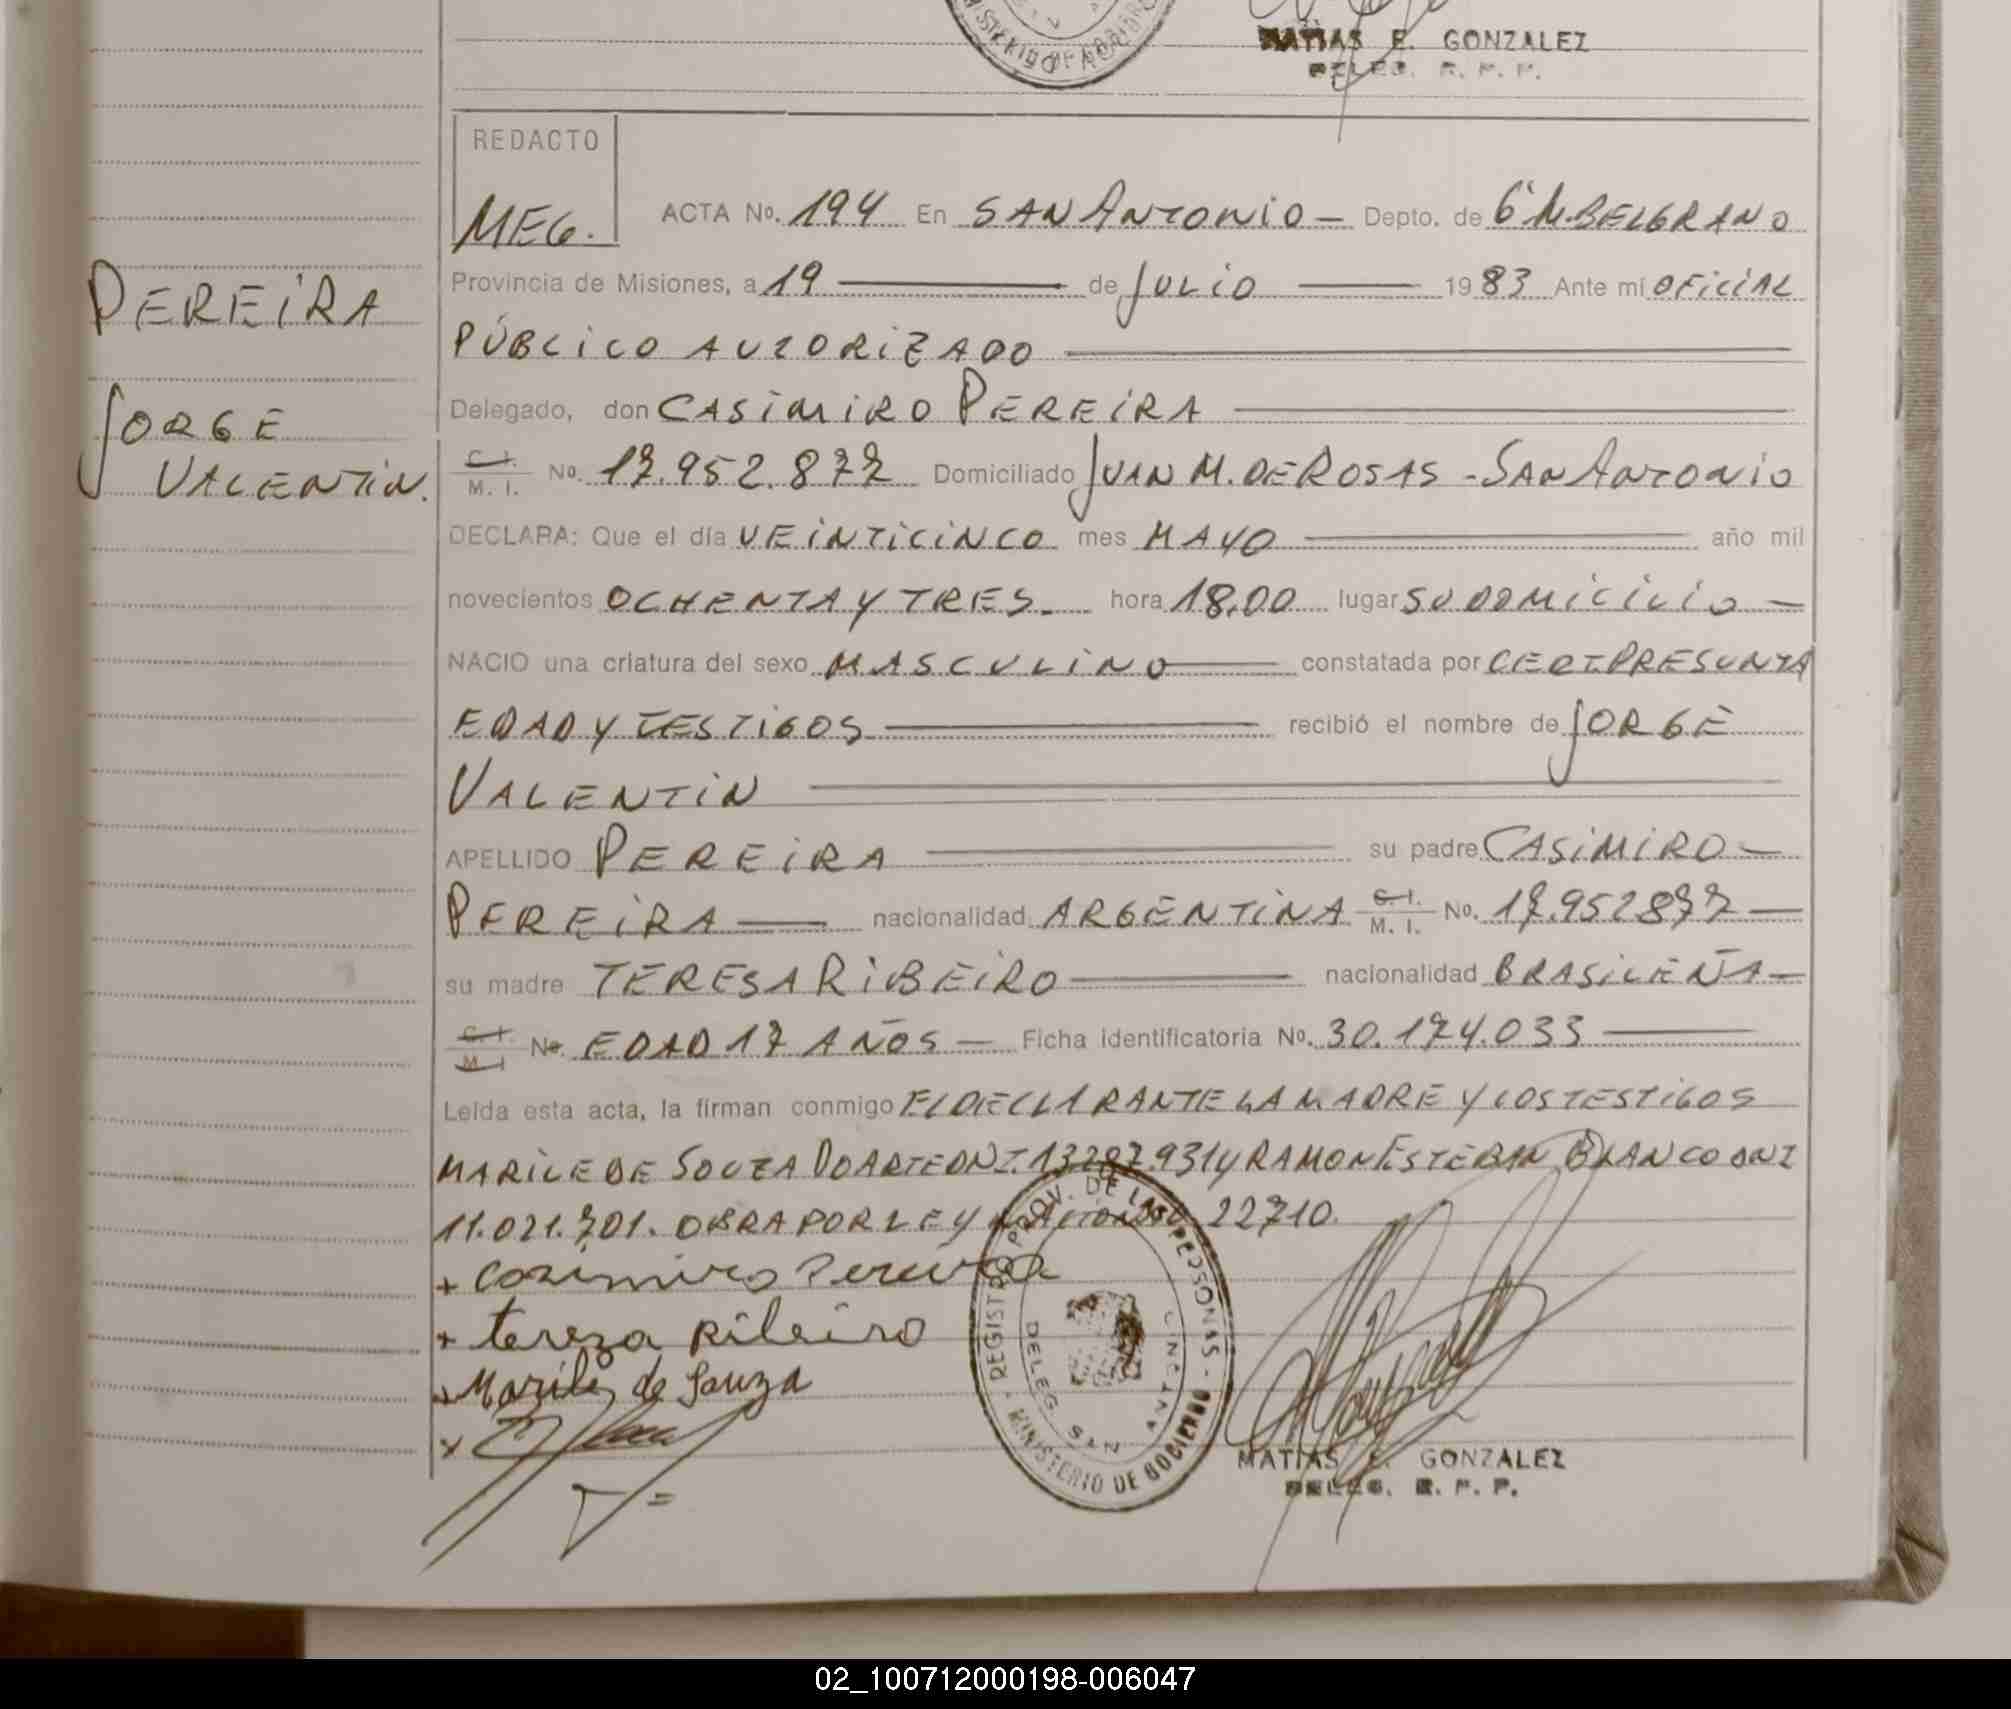 MATIAS E. GONZALEZ
DELEG. R. P. P.
REDACTO
MEG. ACTA No. 194 En SAN ANTONIO — Depto. de G' M. BELGRANO
Provincia de Misiones, a 19 de JULIO 1983 Ante mí OFICIAL
PÚBLICO AUTORIZADO
Delegado, don CASIMIRO PEREIRA
C. I. M. I. No. 17.952.877 Domiciliado JUAN M. DE ROSAS - SAN ANTONIO
DECLARA: Que el día VEINTICINCO mes MAYO año mil
novecientos OCHENTA Y TRES. hora 18,00 lugar SU DOMICILIO —
NACIO una criatura del sexo MASCULINO constatada por CERT. PRESUNTA
EDAD Y TESTIGOS recibió el nombre de JORGE
VALENTIN
APELLIDO PEREIRA su padre CASIMIRO —
PEREIRA — nacionalidad ARGENTINA C. I. M. I. No. 17.952877 —
su madre TERESA RIBEIRO nacionalidad BRASILEÑA —
C. I. M. I. No. EDAD 17 AÑOS — Ficha identificatoria No. 30.174.033
Leída esta acta, la firman conmigo EL DECLARANTE LA MADRE Y LOS TESTIGOS
MARILE DE SOUZA DOARTE DNI. 13287.931 y RAMON ESTEBAN BLANCO DNI
11.021.701. OBRA POR LEY 22710.
+ Casimiro Pereira
+ tereza Ribeiro
Marile de Souza
REGISTRO PROV. DE LAS PERSONAS
MINISTERIO DE GOBIERNO
DELEG. SAN ANTONIO
MATIAS E. GONZALEZ
DELEG. R. P. P.
PEREIRA
JORGE
VALENTIN.
02_100712000198-006047